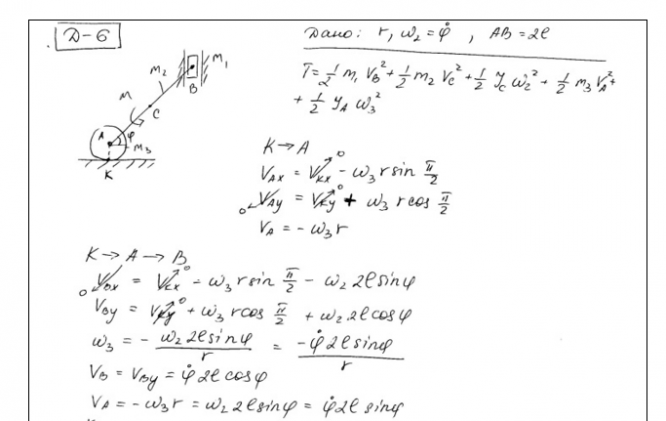 Д-6
Дано: r, ω₂ = φ̇, AB = 2l
T = 1/2 m₁ V_B² + 1/2 m₂ V_C² + 1/2 J_C ω₂² + 1/2 m₃ V_A² +
+ 1/2 J_A ω₃²
m₁
m₂
B
M
C
A φ
m₃
K
K → A
V_Ax = V_Kx⁰ - ω₃ r sin π/2
0 V_Ay = V_Ky⁰ + ω₃ r cos π/2
V_A = - ω₃ r
K → A → B
0 V_Bx = V_Kx⁰ - ω₃ r sin π/2 - ω₂ 2l sin φ
V_By = V_Ky⁰ + ω₃ r cos π/2 + ω₂ 2l cos φ
ω₃ = - ω₂ 2l sin φ / r = -φ̇ 2l sin φ / r
V_B = V_By = φ̇ 2l cos φ
V_A = - ω₃ r = ω₂ 2l sin φ = φ̇ 2l sin φ